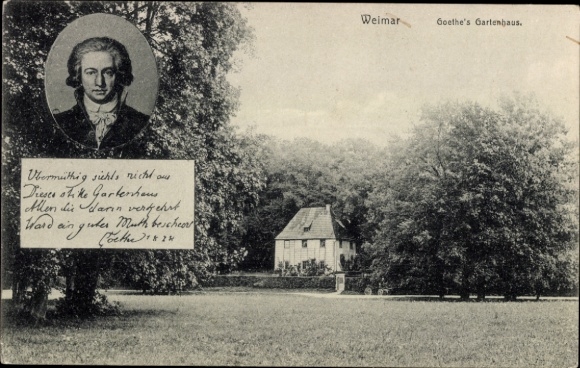 Weimar
Goethe's Gartenhaus.
Übermüthig siehts nicht aus
Dieses stille Gartenhaus
Allen die darin verkehrt
Ward ein guter Muth bescheert
Goethe 1828